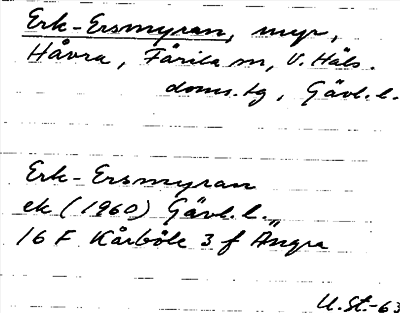 Erk-Ersmyran, myr,
Håvra, Färila sn, V. Häls.
doms.tg, Gävl.l.
Erk-Ersmyran
ek (1960) Gävl.l.
16 F Kårböle 3 f Ängra
U.St.-63